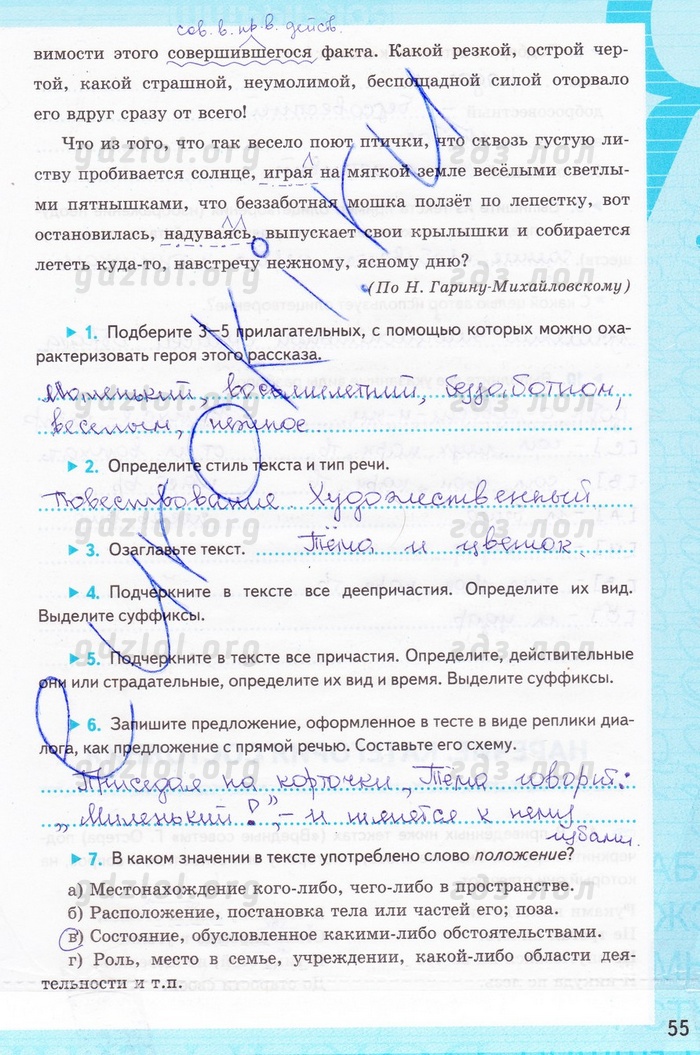 сов. в. пр. в. действ.
вимости этого совершившегося факта. Какой резкой, острой чер-
той, какой страшной, неумолимой, беспощадной силой оторвало
его вдруг сразу от всего!
Что из того, что так весело поют птички, что сквозь густую ли-
ству пробивается солнце, играя на мягкой земле весёлыми светлы-
ми пятнышками, что беззаботная мошка ползёт по лепестку, вот
остановилась, надуваясь, выпускает свои крылышки и собирается
лететь куда-то, навстречу нежному, ясному дню?
(По Н. Гарину-Михайловскому)
1. Подберите 3–5 прилагательных, с помощью которых можно оха-
рактеризовать героя этого рассказа.
Маленький, восьмилетний, беззаботном,
веселым, нежное
2. Определите стиль текста и тип речи.
Повествование. Художественный
3. Озаглавьте текст. Тёма и цветок.
4. Подчеркните в тексте все деепричастия. Определите их вид.
Выделите суффиксы.
5. Подчеркните в тексте все причастия. Определите, действительные
они или страдательные, определите их вид и время. Выделите суффиксы.
6. Запишите предложение, оформленное в тесте в виде реплики диа-
лога, как предложение с прямой речью. Составьте его схему.
Приседая на корточки, Тёма говорит:
„Миленький!", – и тянется к нему
губами.
7. В каком значении в тексте употреблено слово положение?
а) Местонахождение кого-либо, чего-либо в пространстве.
б) Расположение, постановка тела или частей его; поза.
в) Состояние, обусловленное какими-либо обстоятельствами.
г) Роль, место в семье, учреждении, какой-либо области дея-
тельности и т.п.
55
gdzlol.org гдз лол
gdzlol.org гдз лол
gdzlol.org гдз лол
gdzlol.org гдз лол
gdzlol.org гдз лол
gdzlol.org гдз лол
gdzlol.org гдз лол